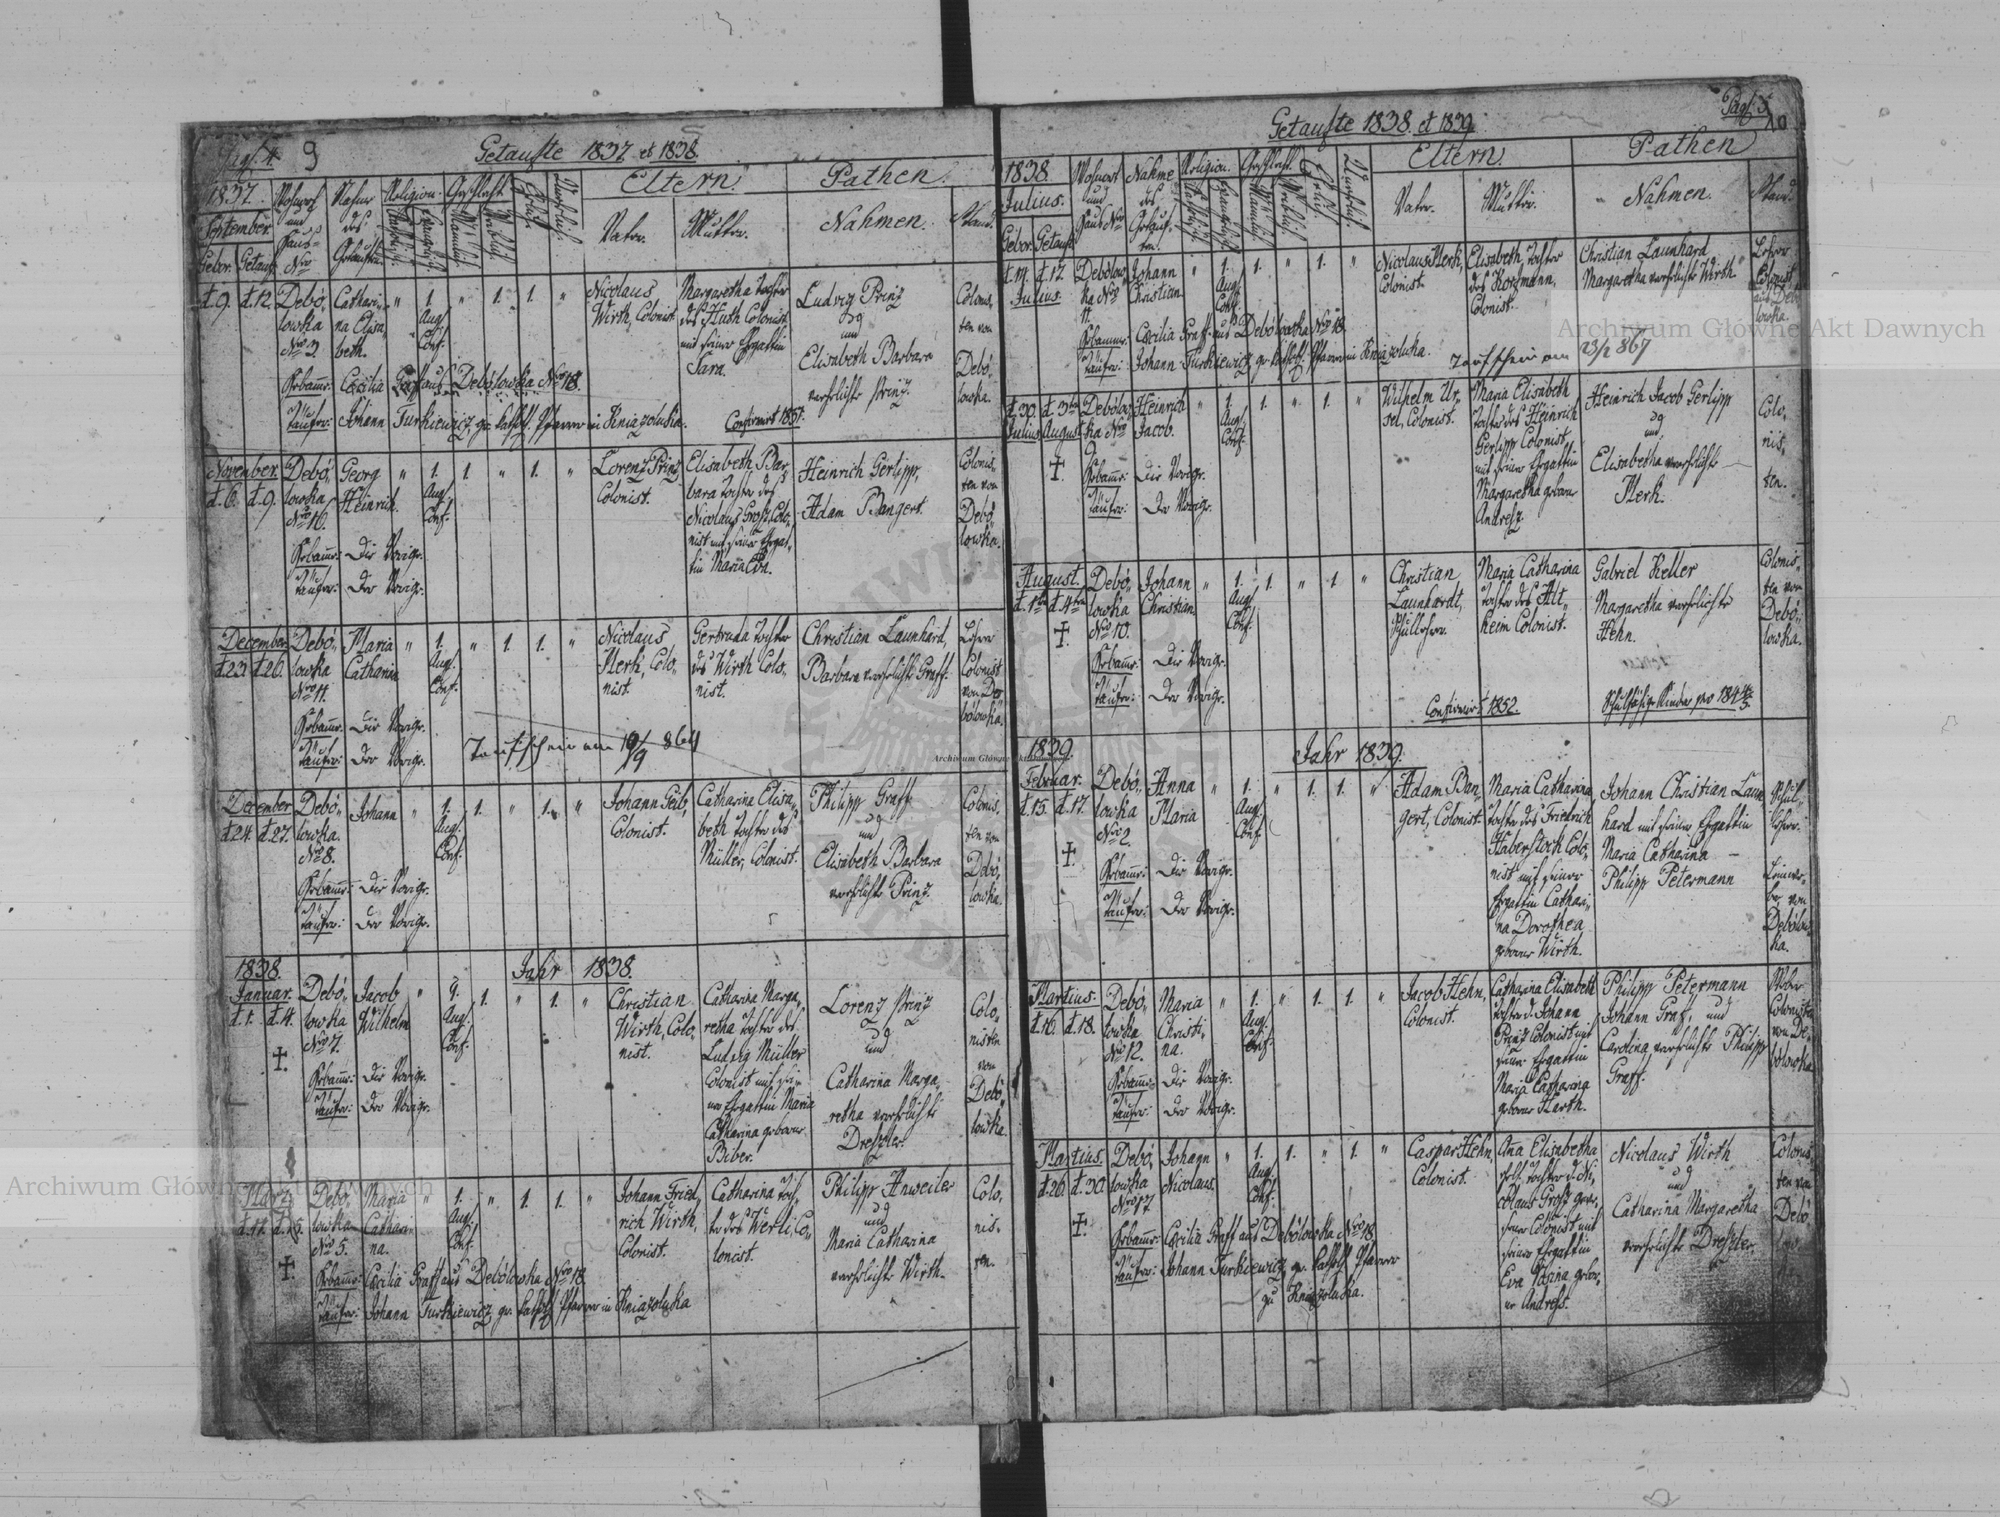 Pag. 4. 9
Getaufte 1837 et 1838.
1837. Wohnort und Haus-Nro Nahme des Getauften. Religion Geschlecht Eltern. Pathen.
September. Gebor. Getauft Katholisch Evangelisch Männlich Weiblich Ehelich Unehelich Vater. Mutter. Nahmen. Stand.
d. 9. d. 12. Debó-
lowka
Nro 3. Cathari-
na Elisa-
beth. " 1. Aug. Conf. " 1. 1. " Nicolaus
Wirth, Colonist. Margaretha Tochter
des Huth Colonist
mit seiner Ehgattin
Sara. Ludwig Prinz
und
Elisabeth Barbara
verehlichte Prinz. Colonis-
ten von
Debó-
lowka.
Hebamme: Cecilia Graff aus Debólowka Nro 18.
Täufer: Johann Turkiewicz gr. kathol. Pfarrer in Kniazoluka. Confirmirt 1851.
November.
d. 6. d. 9. Debó-
lowka
Nro 16. Georg
Heinrich. " 1. Aug. Conf. 1. " 1. " Lorenz Prinz
Colonist. Elisabeth Bar-
bara Tochter des
Nicolaus Grosz, Colo-
nist mit seiner Ehgat-
tin Maria Eva. Heinrich Gerlipp,
Adam Bangert. Colonis-
ten von
Debó-
lowka.
Hebamme: Die Vorige.
Täufer: Der Vorige.
December.
d. 23. d. 26. Debó-
lowka
Nro 11. Maria
Catharina " 1. Aug. Conf. " 1. 1. " Nicolaus
Merk, Colo-
nist. Gertruda Tochter
des Wirth Colo-
nist. Christian Launhard,
Barbara verehlichte Graff. Lehrer
Colonist
von De-
bólowka.
Hebamme: Die Vorige.
Täufer: Der Vorige. Taufschein am 19/9 864
December
d. 24. d. 27. Debó-
lowka.
Nro 8. Johann " 1. Aug. Conf. 1. " 1. " Johann Geib,
Colonist. Catharina Elisa-
beth Tochter des
Müller, Colonist. Philipp Graff
und
Elisabeth Barbara
verehlichte Prinz. Colonis-
ten von
Debó-
lowka.
Hebamme: Die Vorige.
Täufer: Der Vorige.
1838. Jahr 1838.
Januar.
d. 1. d. 4. Debó-
lowka
Nro 7. Jacob
Wilhelm " Aug. Conf. 1. " 1. " Christian
Wirth, Colo-
nist. Catharina Marga-
retha Tochter des
Ludwig Müller
Colonist mit sei-
ner Ehgattin Maria
Catharina geborne
Biber. Lorenz Prinz
und
Catharina Marga-
retha verehlichte
Dreszler. Colo-
nisten
von
Debó-
lowka.
Hebamme: Die Vorige.
Täufer: Der Vorige.
März
Debó-
lowka
Nro 5. Maria
Cathari-
na. " 1. Aug. Conf. " 1. 1. " Johann Fried-
rich Wirth,
Colonist. Catharina Toch-
ter des Werli, Co-
lonist. Philipp Anweiler
und
Maria Catharina
verehlichte Wirth. Colo-
nis-
ten.
Hebamme: Cecilia Graff aus Debólowka Nro 18.
Täufer: Johann Turkiewicz, gr. kathol. Pfarrer in Kniazoluka
Pag. 5. 10
Getaufte 1838 et 1839
1838. Wohnort und Haus Nro Nahme des Getauften. Religion. Geschlecht. Eltern. Pathen
Julius. Gebor. Getauft Katholisch Evangelisch Männlich Weiblich Ehelich Unehelich Vater. Mutter. Nahmen. Stand.
d. 14. d. 17.
Julius. Debólow-
ka Nro
11. Johann
Christian " 1. Aug. Conf. 1. " 1. " Nicolaus Merk,
Colonist. Elisabeth, Tochter
des Horzmann,
Colonist. Christian Launhard
Margaretha verehlichte Wirth. Lehrer
Colonist
aus Debó-
lowka.
Hebamme: Cecilia Graff aus Debólowka Nro 18.
Täufer: Johann Turkiewicz, gr. kathol. Pfarrer in Kniazoluka. Taufschein am 23/2 867
d. 30. d. 3ten
Julius August Debólow-
ka Nro Heinrich
Jacob. " 1. Aug. Conf. 1. " 1. " Wilhelm Ur-
sel, Colonist. Maria Elisabeth
Tochter des Heinrich
Gerlipp Colonist,
mit seiner Ehgattin
Margaretha geborne
Andresz. Heinrich Jacob Gerlipp
und
Elisabetha verehlichte
Merk. Colo-
nis-
ten.
Hebamme: Die Vorige.
Täufer: Der Vorige.
August.
d. 1ten d. 4ten Debó-
lowka
Nro 10. Johann
Christian " 1. Aug. Conf. 1. " 1. " Christian
Launhardt,
Schullehrer. Maria Catharina
Tochter des Alt-
heim Colonist. Gabriel Keller
Margaretha verehlichte
Hehn. Colonis-
ten von
Debó-
lowka.
Hebamme: Die Vorige.
Täufer: Der Vorige.
Confirmirt 1852. Schulfähige Kinder pro 1844/5
1839. Jahr 1839.
Februar.
d. 15. d. 17. Debó-
lowka
Nro 2. Anna
Maria " 1. Aug. Conf. 1. 1. " Adam Ban-
gert, Colonist. Maria Catharina,
Tochter des Friedrich
Haberstock Colo-
nist mit seiner
Ehgattin Cathari-
na Dorothea
geborne Wirth. Johann Christian Laun-
hard mit seiner Ehgattin
Maria Catharina
Philipp Petermann Schul-
lehrer.
Leinwe-
ber von
Debólow-
ka.
Hebamme: Die Vorige.
Täufer: Der Vorige.
Martius.
d. 16. d. 18. Debó-
lowka
Nro 12. Maria
Christi-
na. " 1. Aug. Conf. " 1. 1. " Jacob Hehn,
Colonist. Catharina Elisabeth
Tochter d. Johann
Prinz Colonist mit
seiner Ehgattin
Maria Catharina
geborne Harth. Philipp Petermann
Johann Graf, und
Carolina verehlichte Philipp
Graff. Weber
Colonisten
von De-
bólowka
Hebamme: Die Vorige.
Täufer: Der Vorige.
Martius.
d. 26. d. 30. Debó-
lowka
Nro 17. Johann
Nicolaus. " 1. Aug. Conf. 1. " 1. " Caspar Hehn,
Colonist. Ana Elisabetha,
Tochter d. Ni-
colaus Grosz
Colonist mit
seiner Ehgattin
Eva Maria gebor-
ne Andress. Nicolaus Wirth
und
Catharina Margaretha
verehlichte Dreszler. Colonis-
ten von
Debó-
Hebamme: Cecilia Graff aus Debólowka Nro 18
Täufer: Johann Turkiewicz, gr. kathol. Pfarrer
zu Kniazoluka.
Archiwum Główne Akt Dawnych
Archiwum Główne Akt Dawnych
Archiwum Główne Akt Dawnych